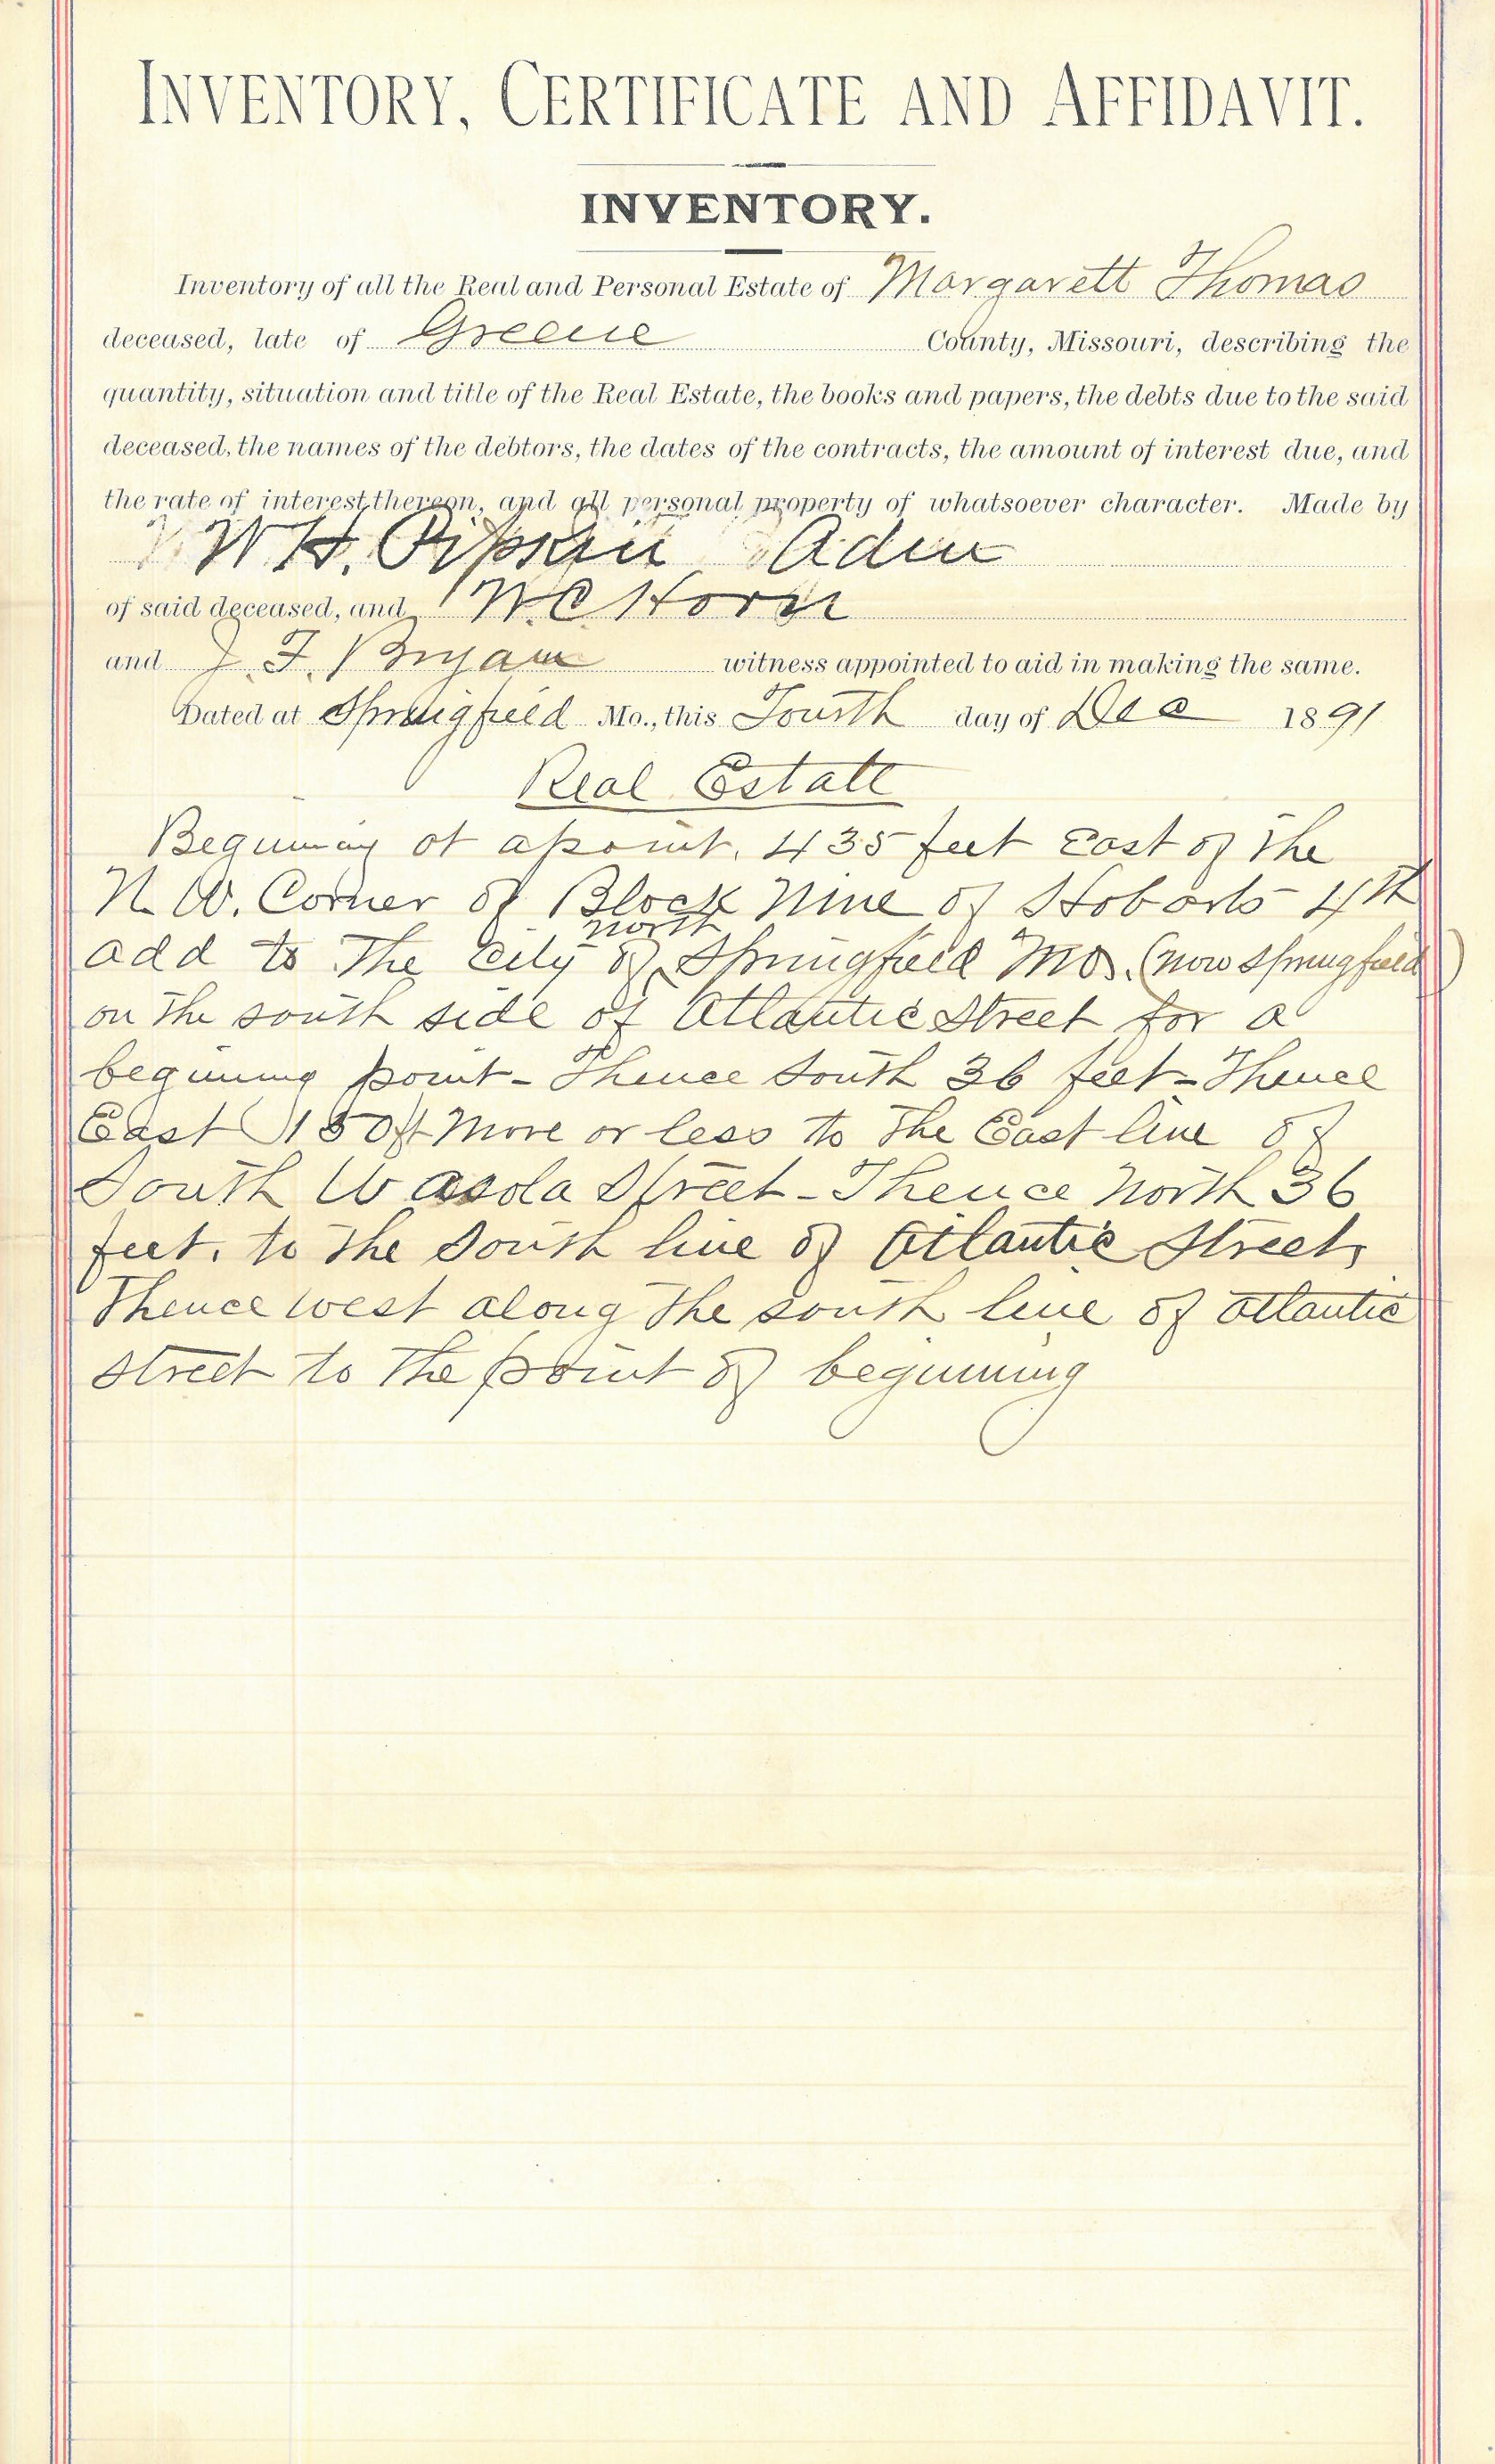 INVENTORY, CERTIFICATE AND AFFIDAVIT.
INVENTORY.
Inventory of all the Real and Personal Estate of Margarett Thomas
deceased, late of Greene County, Missouri, describing the
quantity, situation and title of the Real Estate, the books and papers, the debts due to the said
deceased, the names of the debtors, the dates of the contracts, the amount of interest due, and
the rate of interest thereon, and all personal property of whatsoever character. Made by
W H. Pipkin Adm
of said deceased, and W. C Horn
and J. F. Bryan witness appointed to aid in making the same.
Dated at Springfield Mo., this Fourth day of Dec 1891
Real Estate
Beginning at a point. 435 feet East of The
N. W. Corner of Block Nine of Hobarts 4th
north
add to The City of Springfield Mo. (now Springfield)
on The south side of Atlantic Street for a
begining point - Thence South 36 feet - Thence
East 150 ft More or less to The East line of
South Wasola Street - Thence North 36
feet. to The South line of Atlantic Street,
Thence west along The south line of Atlantic
street to The point of beginning